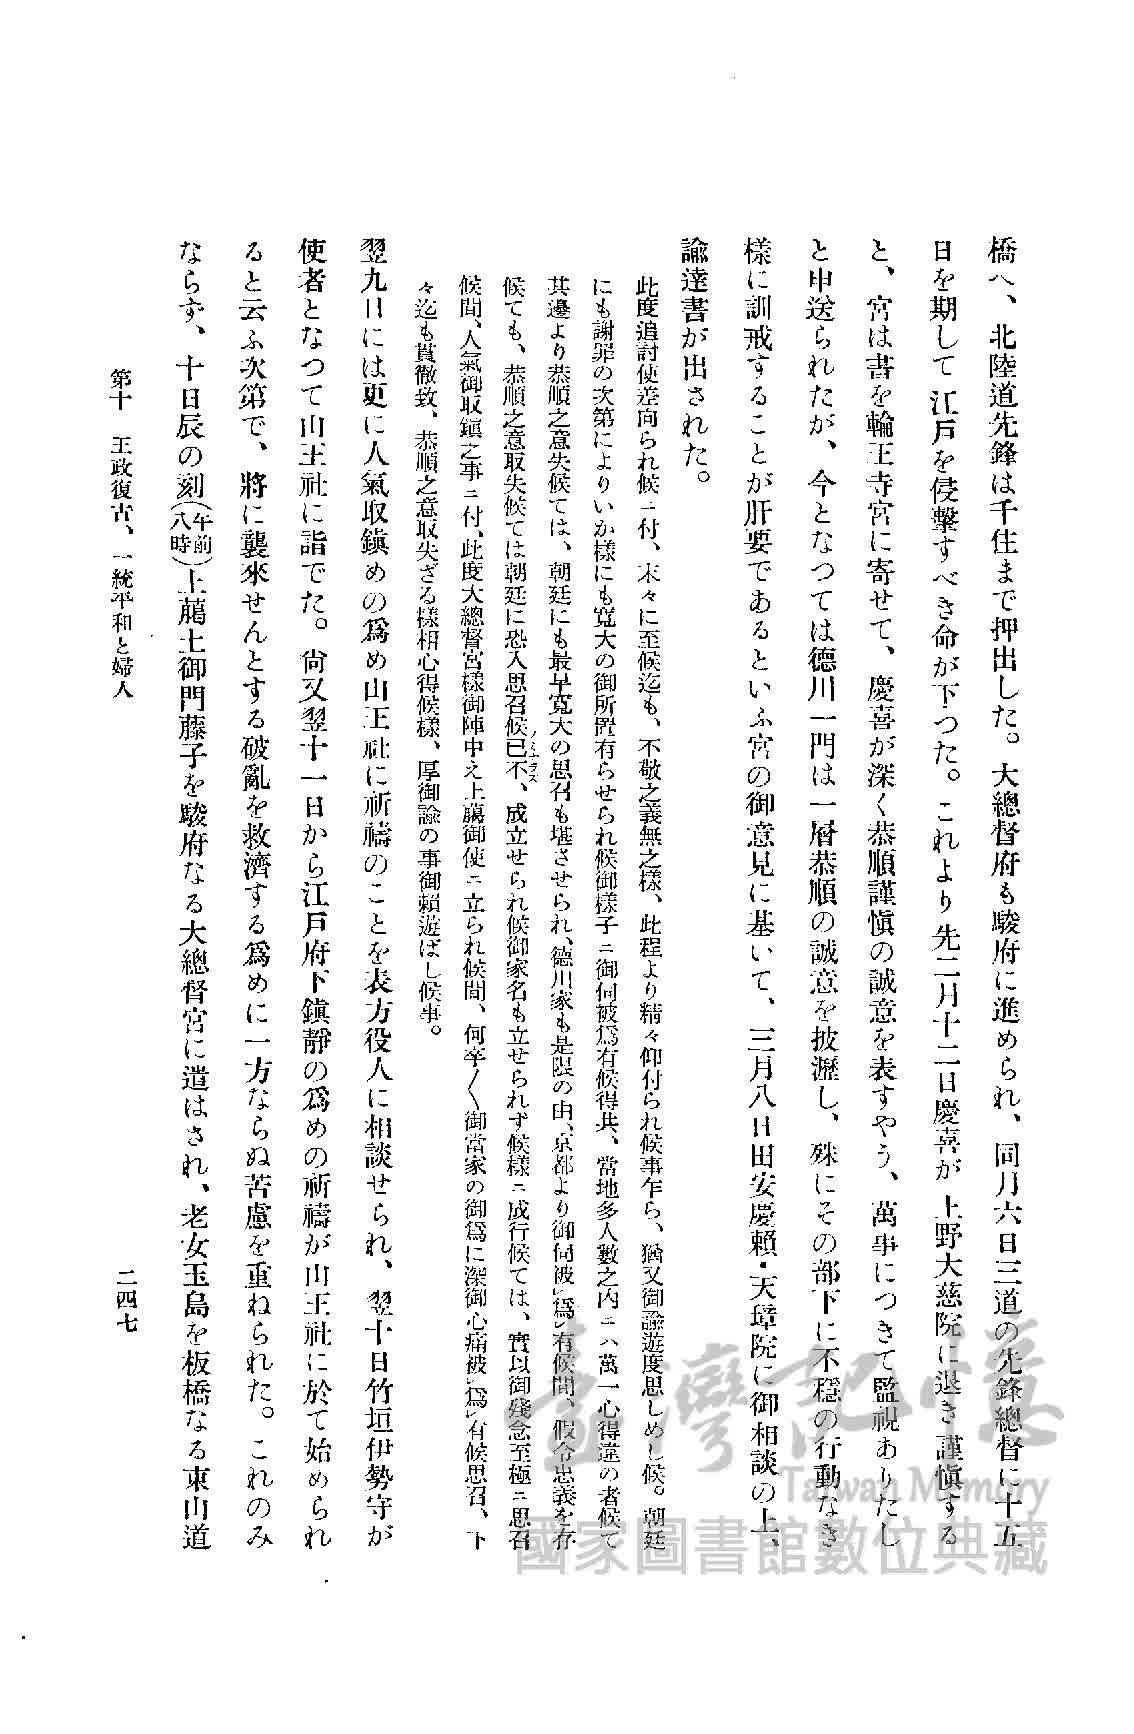 橋へ、北陸道先鋒は千住まで押出した。大總督府も駿府に進められ、同月六日三道の先鋒總督に十五
日を期して江戸を侵擊すべき命が下つた。これより先二月十二日慶喜が上野大慈院に退き謹愼する
と、宮は書を輪王寺宮に寄せて、慶喜が深く恭順謹愼の誠意を表すやう、萬事につきて監視ありたし
と申送られたが、今となつては德川一門は一層恭順の誠意を披瀝し、殊にその部下に不穩の行動なき
樣に訓戒することが肝要であるといふ宮の御意見に基いて、三月八日田安慶賴・天璋院に御相談の上、
諭達書が出された。
此度追討使差向られ候ニ付、末々に至候迄も、不敬之義無之樣、此程より精々仰付られ候事乍ら、猶又御諭遊度思しめし候。朝廷
にも謝罪の次第によりいか樣にも寬大の御所置有らせられ候御樣子ニ御伺被爲有候得共、當地多人數之內ニハ萬一心得違の者候て
其邊より恭順之意失候ては、朝廷にも最早寬大の思召も堪させられ、德川家も是限の由、京都より御伺被レ爲レ有候間、假令忠義を存
候ても、恭順之意取失候ては朝廷に恐入思召候已不、成立せられ候御家名も立せられず候樣ニ成行候ては、實以御殘念至極ニ思召
候間、人氣御取鎭之事ニ付、此度大總督宮樣御陣中え上﨟御使ニ立られ候間、何卒〱御當家の御爲に深御心痛被レ爲レ有候思召、下
々迄も貫徹致、恭順之意取失ざる樣相心得候樣、厚御諭の事御賴遊ばし候事。
翌九日には更に人氣取鎭めの爲め山王社に祈禱のことを表方役人に相談せられ、翌十日竹垣伊勢守が
使者となつて山王社に詣でた。尙又翌十一日から江戸府下鎭靜の爲めの祈禱が山王社に於て始められ
ると云ふ次第で、將に襲來せんとする破亂を救濟する爲めに一方ならぬ苦慮を重ねられた。これのみ
ならず、十日辰の刻(午前八時)上﨟土御門藤子を駿府なる大總督宮に遣はされ、老女玉島を板橋なる東山道
第十　王政復古、一統平和と婦人
二四七
臺灣記憶
Taiwan Memory
國家圖書館數位典藏